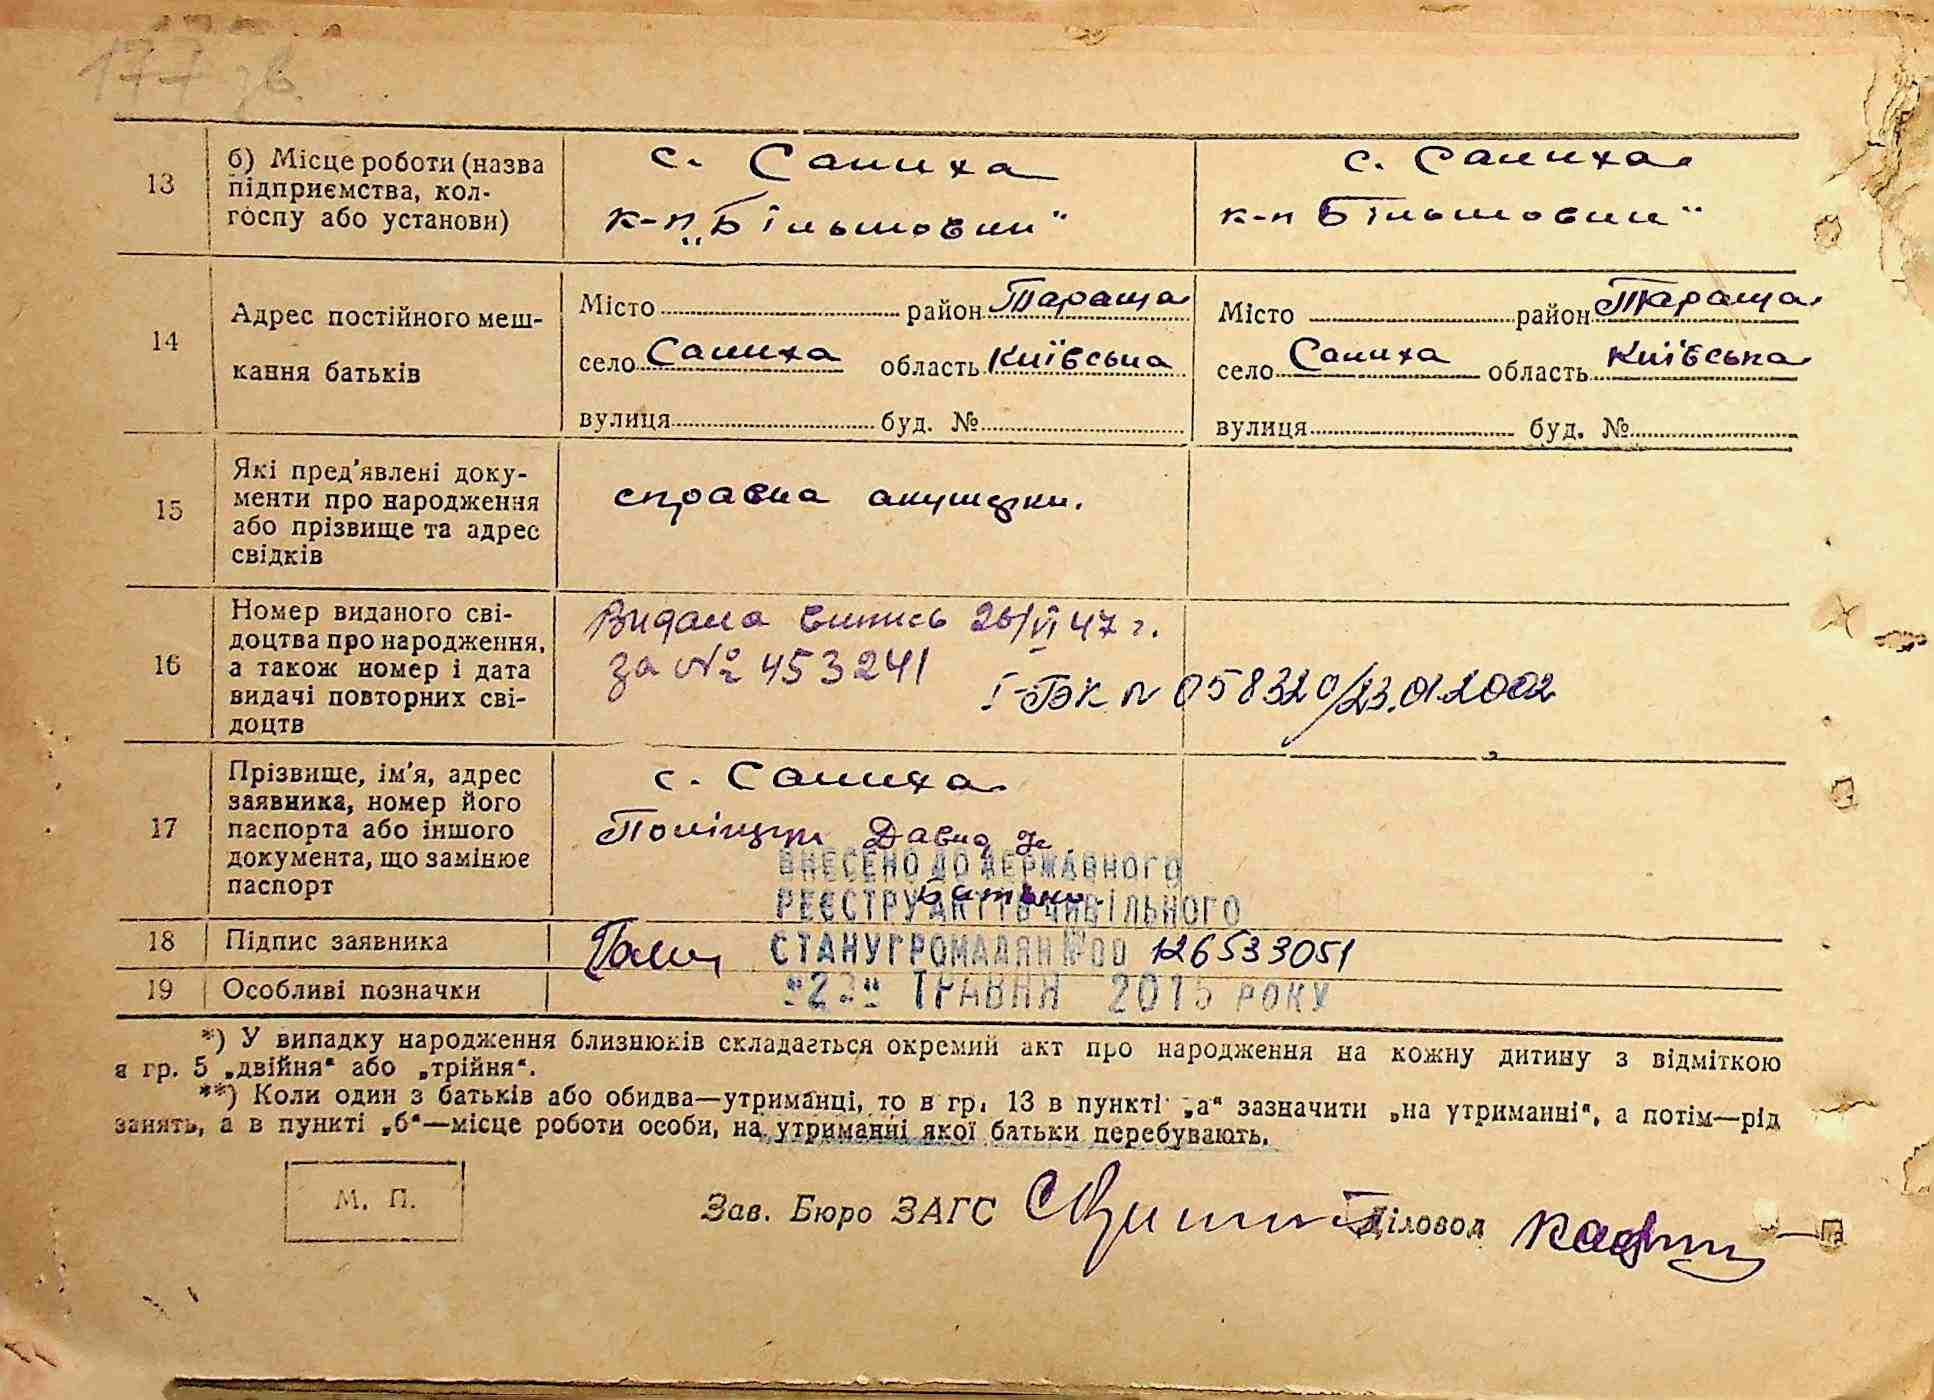 177 зв.
13
б) Місце роботи (назва
підприємства, кол-
госпу або установи)
с. Салиха
к-п „Більшовик"
с. Салиха
к-п Більшовик"
14
Адрес постійного меш-
кання батьків
Місто район Тараща
село Салиха область Київська
вулиця буд. №
Місто район Тараща
село Салиха область Київська
вулиця буд. №
15
Які пред'явлені доку-
менти про народження
або прізвище та адрес
свідків
справка акушерки.
16
Номер виданого сві-
доцтва про народження,
а також номер і дата
видачі повторних сві-
доцтв
Видала випись 26/VI 47 г.
за № 453241
І-БК № 058320/23.01.2002
17
Прізвище, ім'я, адрес
заявника, номер його
паспорта або іншого
документа, що замінює
паспорт
с. Салиха
Поліщук Давид
Батько.
ВНЕСЕНО ДО ДЕРЖАВНОГО
РЕЄСТРУ АКТІВ ЦИВІЛЬНОГО
СТАНУ ГРОМАДЯН №00 126533051
"22" ТРАВНЯ 2015 РОКУ
18
Підпис заявника
Полищ
19
Особливі позначки
*) У випадку народження близнюків складається окремий акт про народження на кожну дитину з відміткою
в гр. 5 „двійня“ або „трійня“.
**) Коли один з батьків або обидва—утриманці, то в гр. 13 в пункті „а“ зазначити „на утриманні“, а потім—рід
занять, а в пункті „б“—місце роботи особи, на утриманні якої батьки перебувають.
М. П.
Зав. Бюро ЗАГС
Діловод